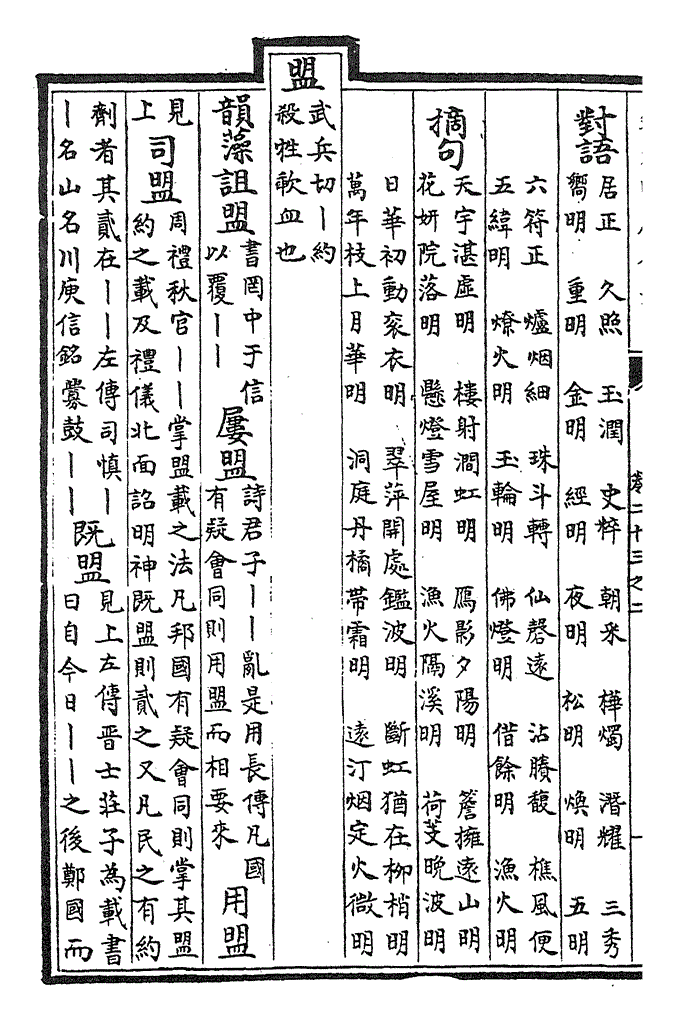 卷二十三之二
對語
居正　久照　玉潤　史粹　朝采　樺燭　潛耀　三秀
嚮明　重明　金明　經明　夜明　松明　煥明　五明
六符正　爐烟細　珠斗轉　仙磬遠　沾賸馥　樵風便
五緯明　燎火明　玉輪明　佛燈明　借餘明　漁火明
摘句
天宇湛虛明　樓射澗虹明　鴈影夕陽明　簷擁遠山明
花妍院落明　懸燈雪屋明　漁火隔溪明　荷芰晚波明
日華初動衮衣明　翠萍開處鑑波明　斷虹猶在柳梢明
萬年枝上月華明　洞庭丹橘帶霜明　遠汀烟定火微明
盟
武兵切丨約
殺牲歃血也
韻藻詛盟
書罔中于信
以覆丨丨
屢盟
詩君子丨丨亂是用長傳凡國
有疑會同則用盟而相要來
用盟
見
上
司盟
周禮秋官丨丨掌盟載之法凡邦國有疑會同則掌其盟
約之載及禮儀北面詔明神既盟則貳之又凡民之有約
劑者其貳在丨丨左傳司慎丨
丨名山名川庾信銘釁鼓丨丨
既盟
見上左傳晉士莊子為載書
曰自今日丨丨之後鄭國而